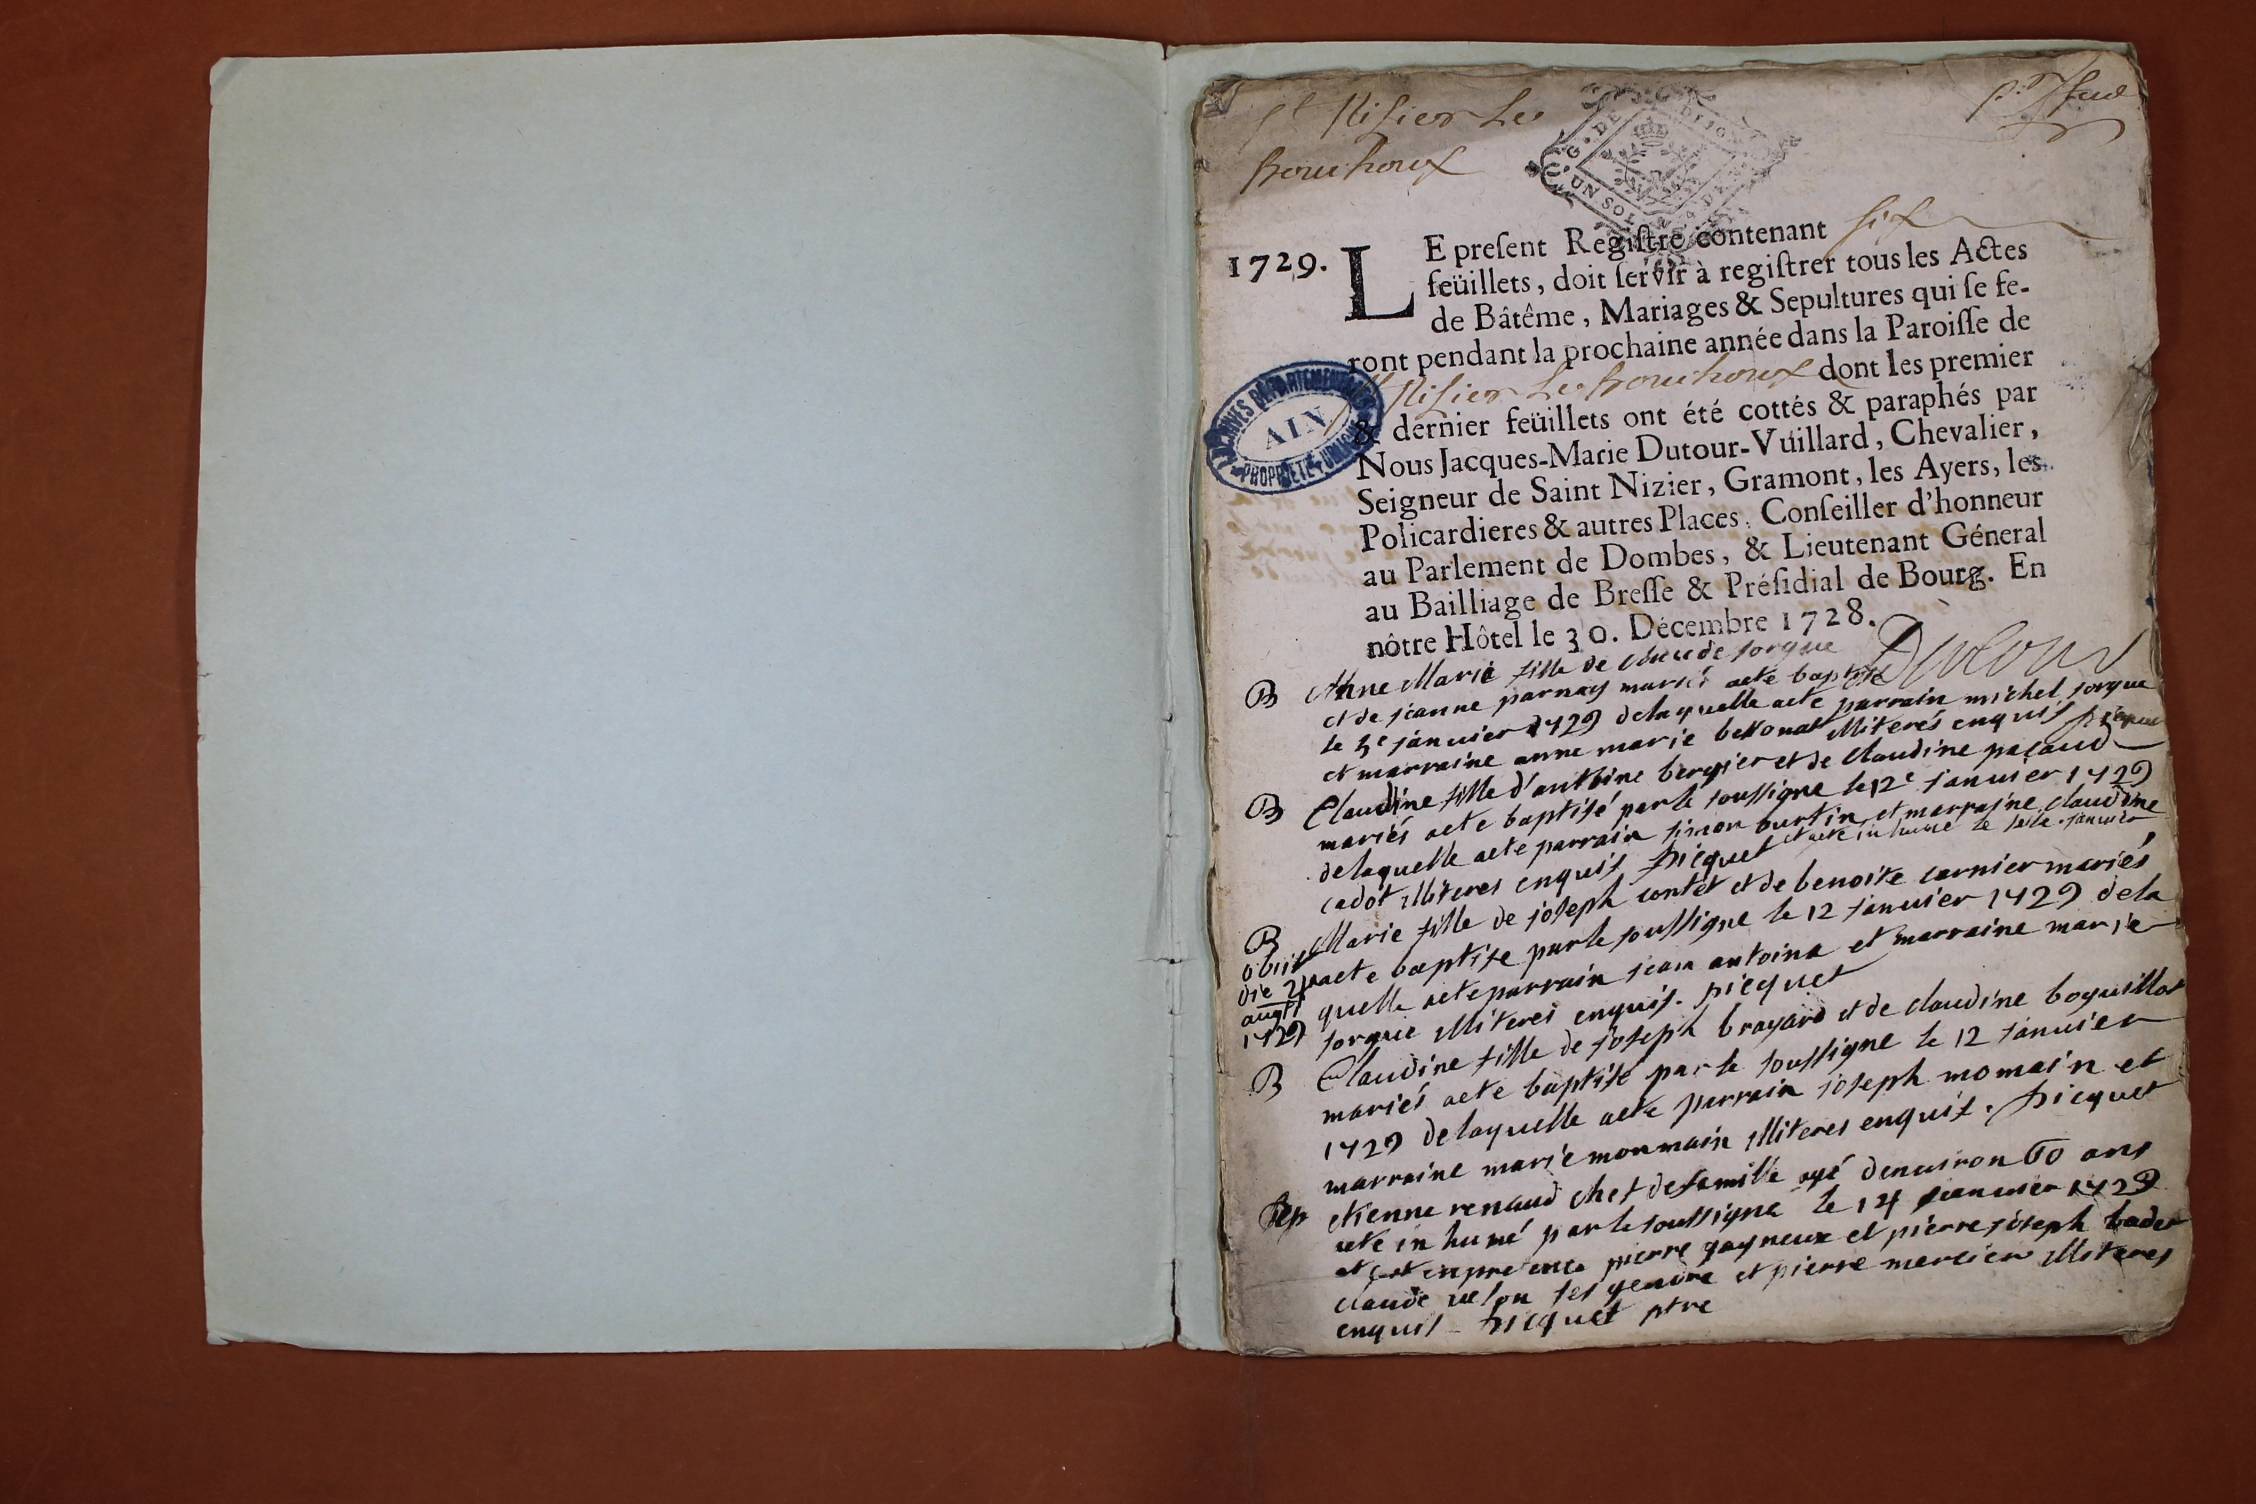 St Nisier Le
Bouchoux
G. DE DIJON
UN SOL
1729.
LE preſent Regiſtre contenant six
feüillets, doit ſervir à regiſtrer tous les Actes
de Bâtême, Mariages & Sepultures qui ſe fe-
ront pendant la prochaine année dans la Paroiſſe de
St Nisier Le Bouchoux dont les premier
& dernier feüillets ont été cottés & paraphés par
Nous Jacques-Marie Dutour-Vuillard, Chevalier,
Seigneur de Saint Nizier, Gramont, les Ayers, les
Policardieres & autres Places, Conſeiller d'honneur
au Parlement de Dombes, & Lieutenant Géneral
au Bailliage de Breſſe & Préſidial de Bourg. En
nôtre Hôtel le 30. Décembre 1728.
Dutour
ARCHIVES DÉPARTEMENTALES
AIN
PROPRIÉTÉ PUBLIQUE
B Anne Marie fille de claude sorgue
et de jeanne parnay mariés aete baptisé
le 5e januier 1729 delaquelle aete parrain michel sorgue
et marraine anne marie bettonat illiterés enquis picquet
B Claudine fille d'antoine bergier et de claudine pacaud
mariés aete baptisé par le soussigne le 12e januier 1729
delaquelle aete parrain simon burtin et marraine claudine
cadot illiteres enquis picquet et aete inhumé le januier
B Marie fille de joseph contet et de benoite carnier mariés
obiit die 21 augti 1729
aete baptise par le soussigne le 12 januier 1729 dela
quelle aete parrain jean antoina et marraine marie
sorgue illiteres enquis. picquet
B Claudine fille de joseph brayard et de claudine boquillot
mariés aete baptise par le soussigne le 12 januier
1729 delaquelle aete parrain joseph momain et
marraine marie monmain illiteres enquis. picquet
Sep etienne renaud chef de famille agé denuiron 60 ans
aete inhumé par le soussigne le 14 januier 1729
et ce en presence pierre gayneux et pierre joseph badet
claude uelon ses gendre et pierre mercier illiteres
enquis picquet ptre